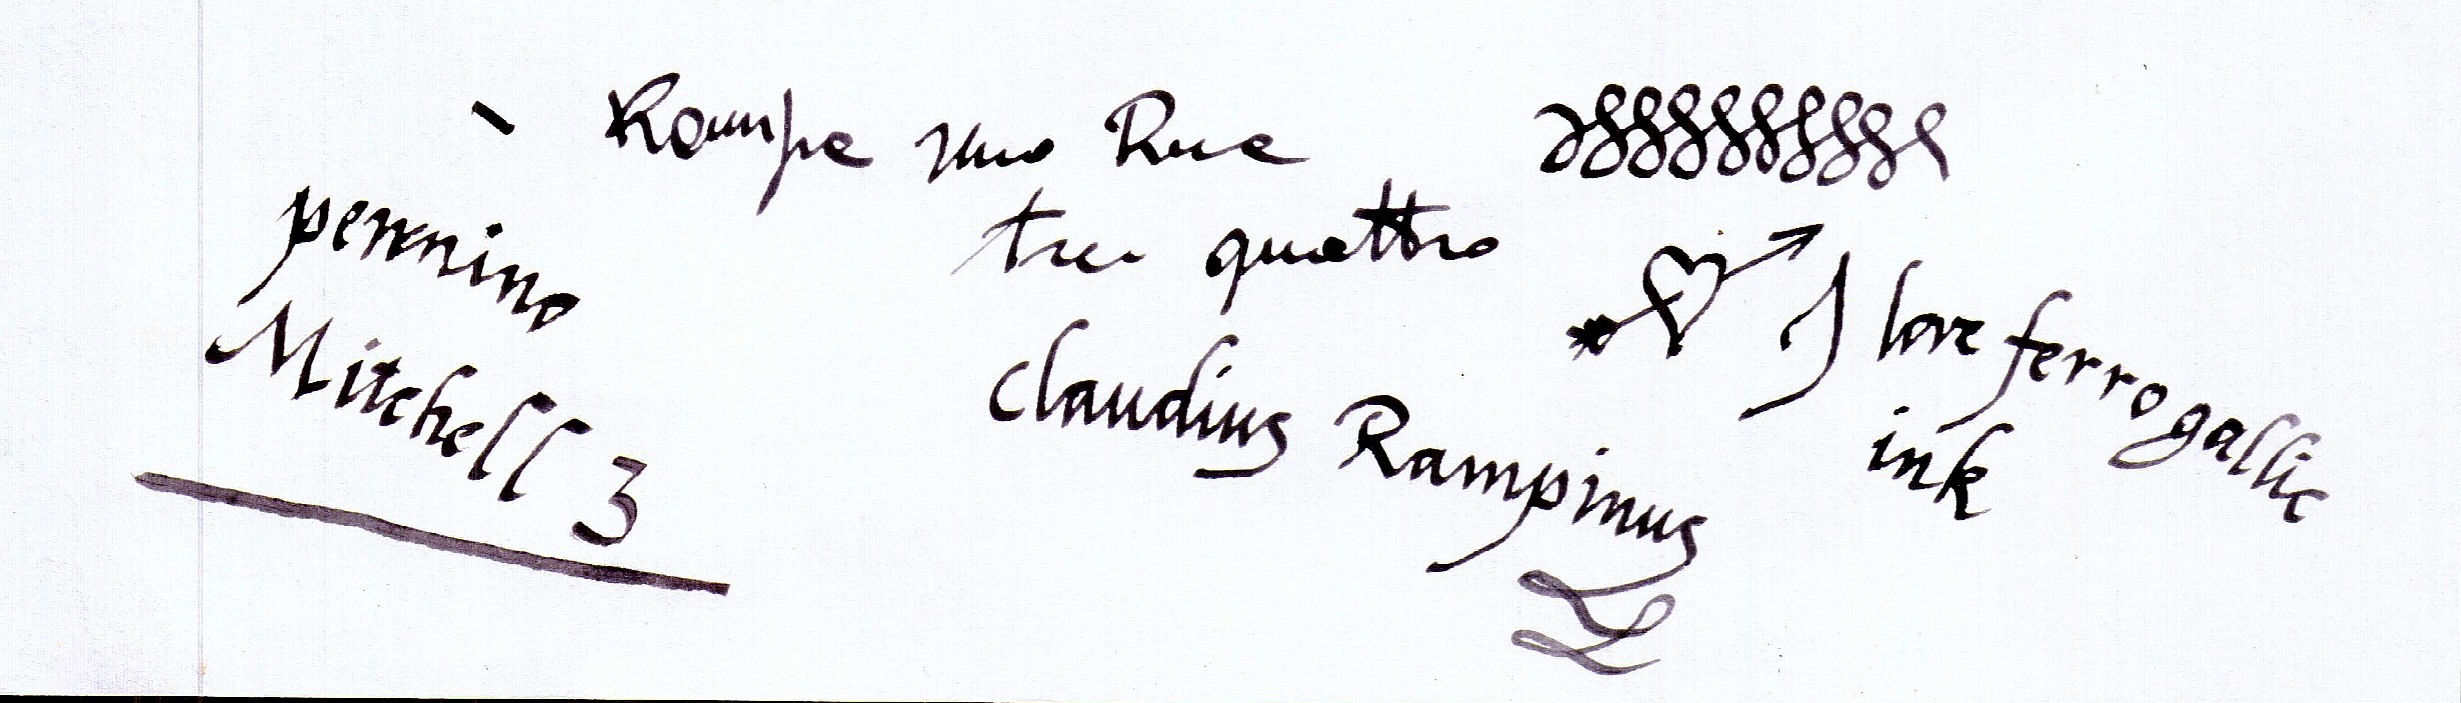 Rompe uno Due
tre quattro
pennino
Mitchell 3
Claudius Rampinus
I love ferrogallic
ink